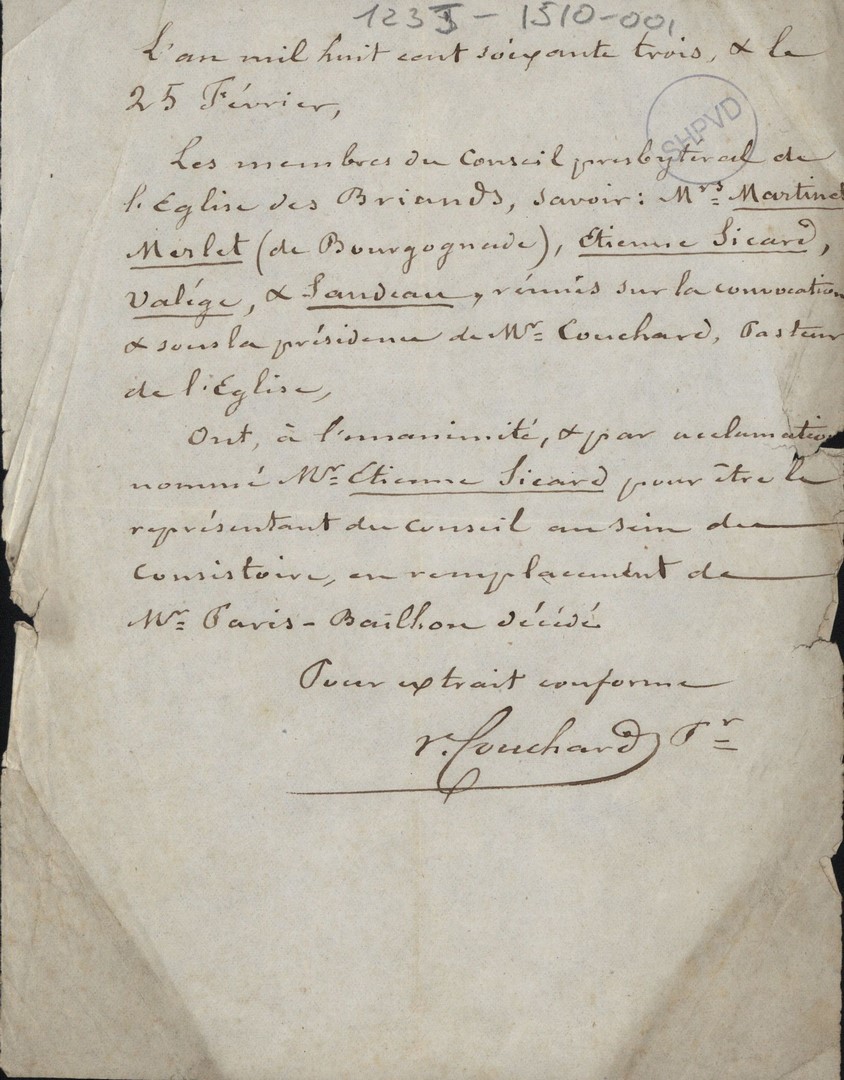 123J-1510-001
L'an mil huit cent soixante trois, & le
25 Février,
SHPVD
Les membres du Conseil presbyteral de
l'Eglise des Briands, savoir: Mrs Martinet
Merlet (de Bourgognade), Etienne Sicard,
Valége, & Landeau, réunis sur la convocation
& sous la présidence de Mr Couchard, Pasteur
de l'Eglise,
Ont, à l'unanimité, & par acclamation
nommé Mr Etienne Sicard pour être le
représentant du conseil au sein du
Consistoire, en remplacement de
Mr Paris-Bailhon décédé
Pour extrait conforme
V. Couchard Pr